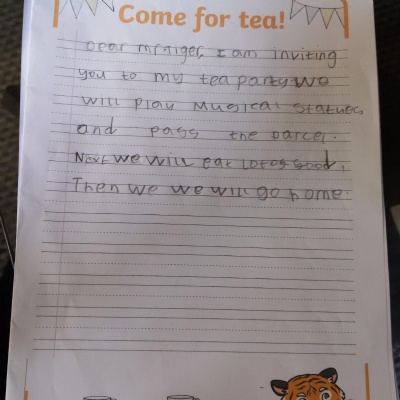 Come for tea!
Dear mr tiger, I am inviting
you to my tea party we
will play musical statues
and pass the parcel.
Next we will eat lots good,
Then we we will go home.